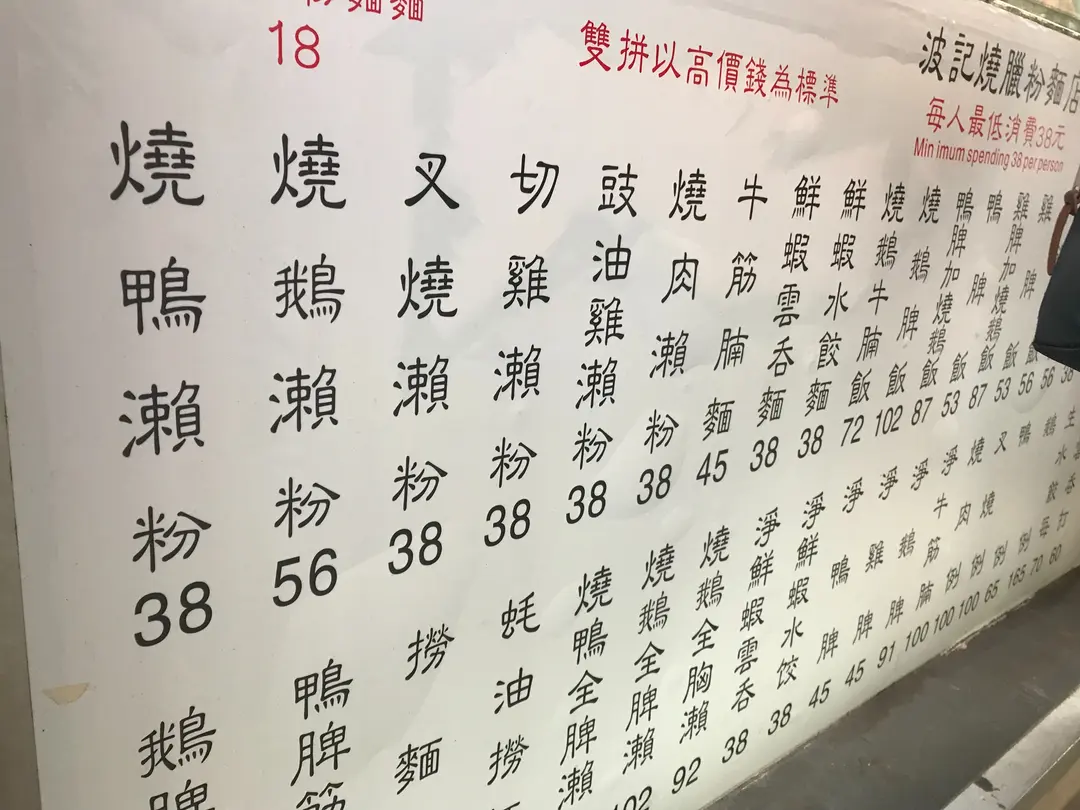 麵麵
18
雙拼以高價錢為標準
波記燒臘粉麵店
每人最低消費38元
Min imum spending 38 per person
燒鴨瀨粉38
燒鵝瀨粉56
叉燒瀨粉38
切雞瀨粉38
豉油雞瀨粉38
燒肉瀨粉38
牛筋腩麵45
鮮蝦雲吞麵38
鮮蝦水餃麵38
燒鵝牛腩飯72
燒鵝脾飯102
鴨脾加燒鵝飯87
鴨脾飯53
雞脾加燒鵝飯87
雞脾飯53
56
56
鵝脾
鴨脾筋
撈麵
蚝油撈
燒鴨全脾瀨
燒鵝全脾瀨102
燒鵝全胸瀨92
淨鮮蝦雲吞38
淨鮮蝦水饺38
淨鴨脾45
淨雞脾45
淨鵝脾91
淨牛筋腩100
燒肉例100
叉燒例100
鴨例65
鵝例165
每70
打60